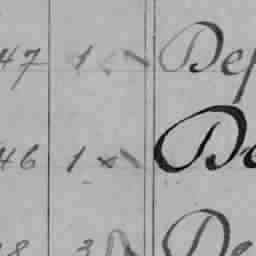 47 1 Dep
46 1 x De
8 3 De